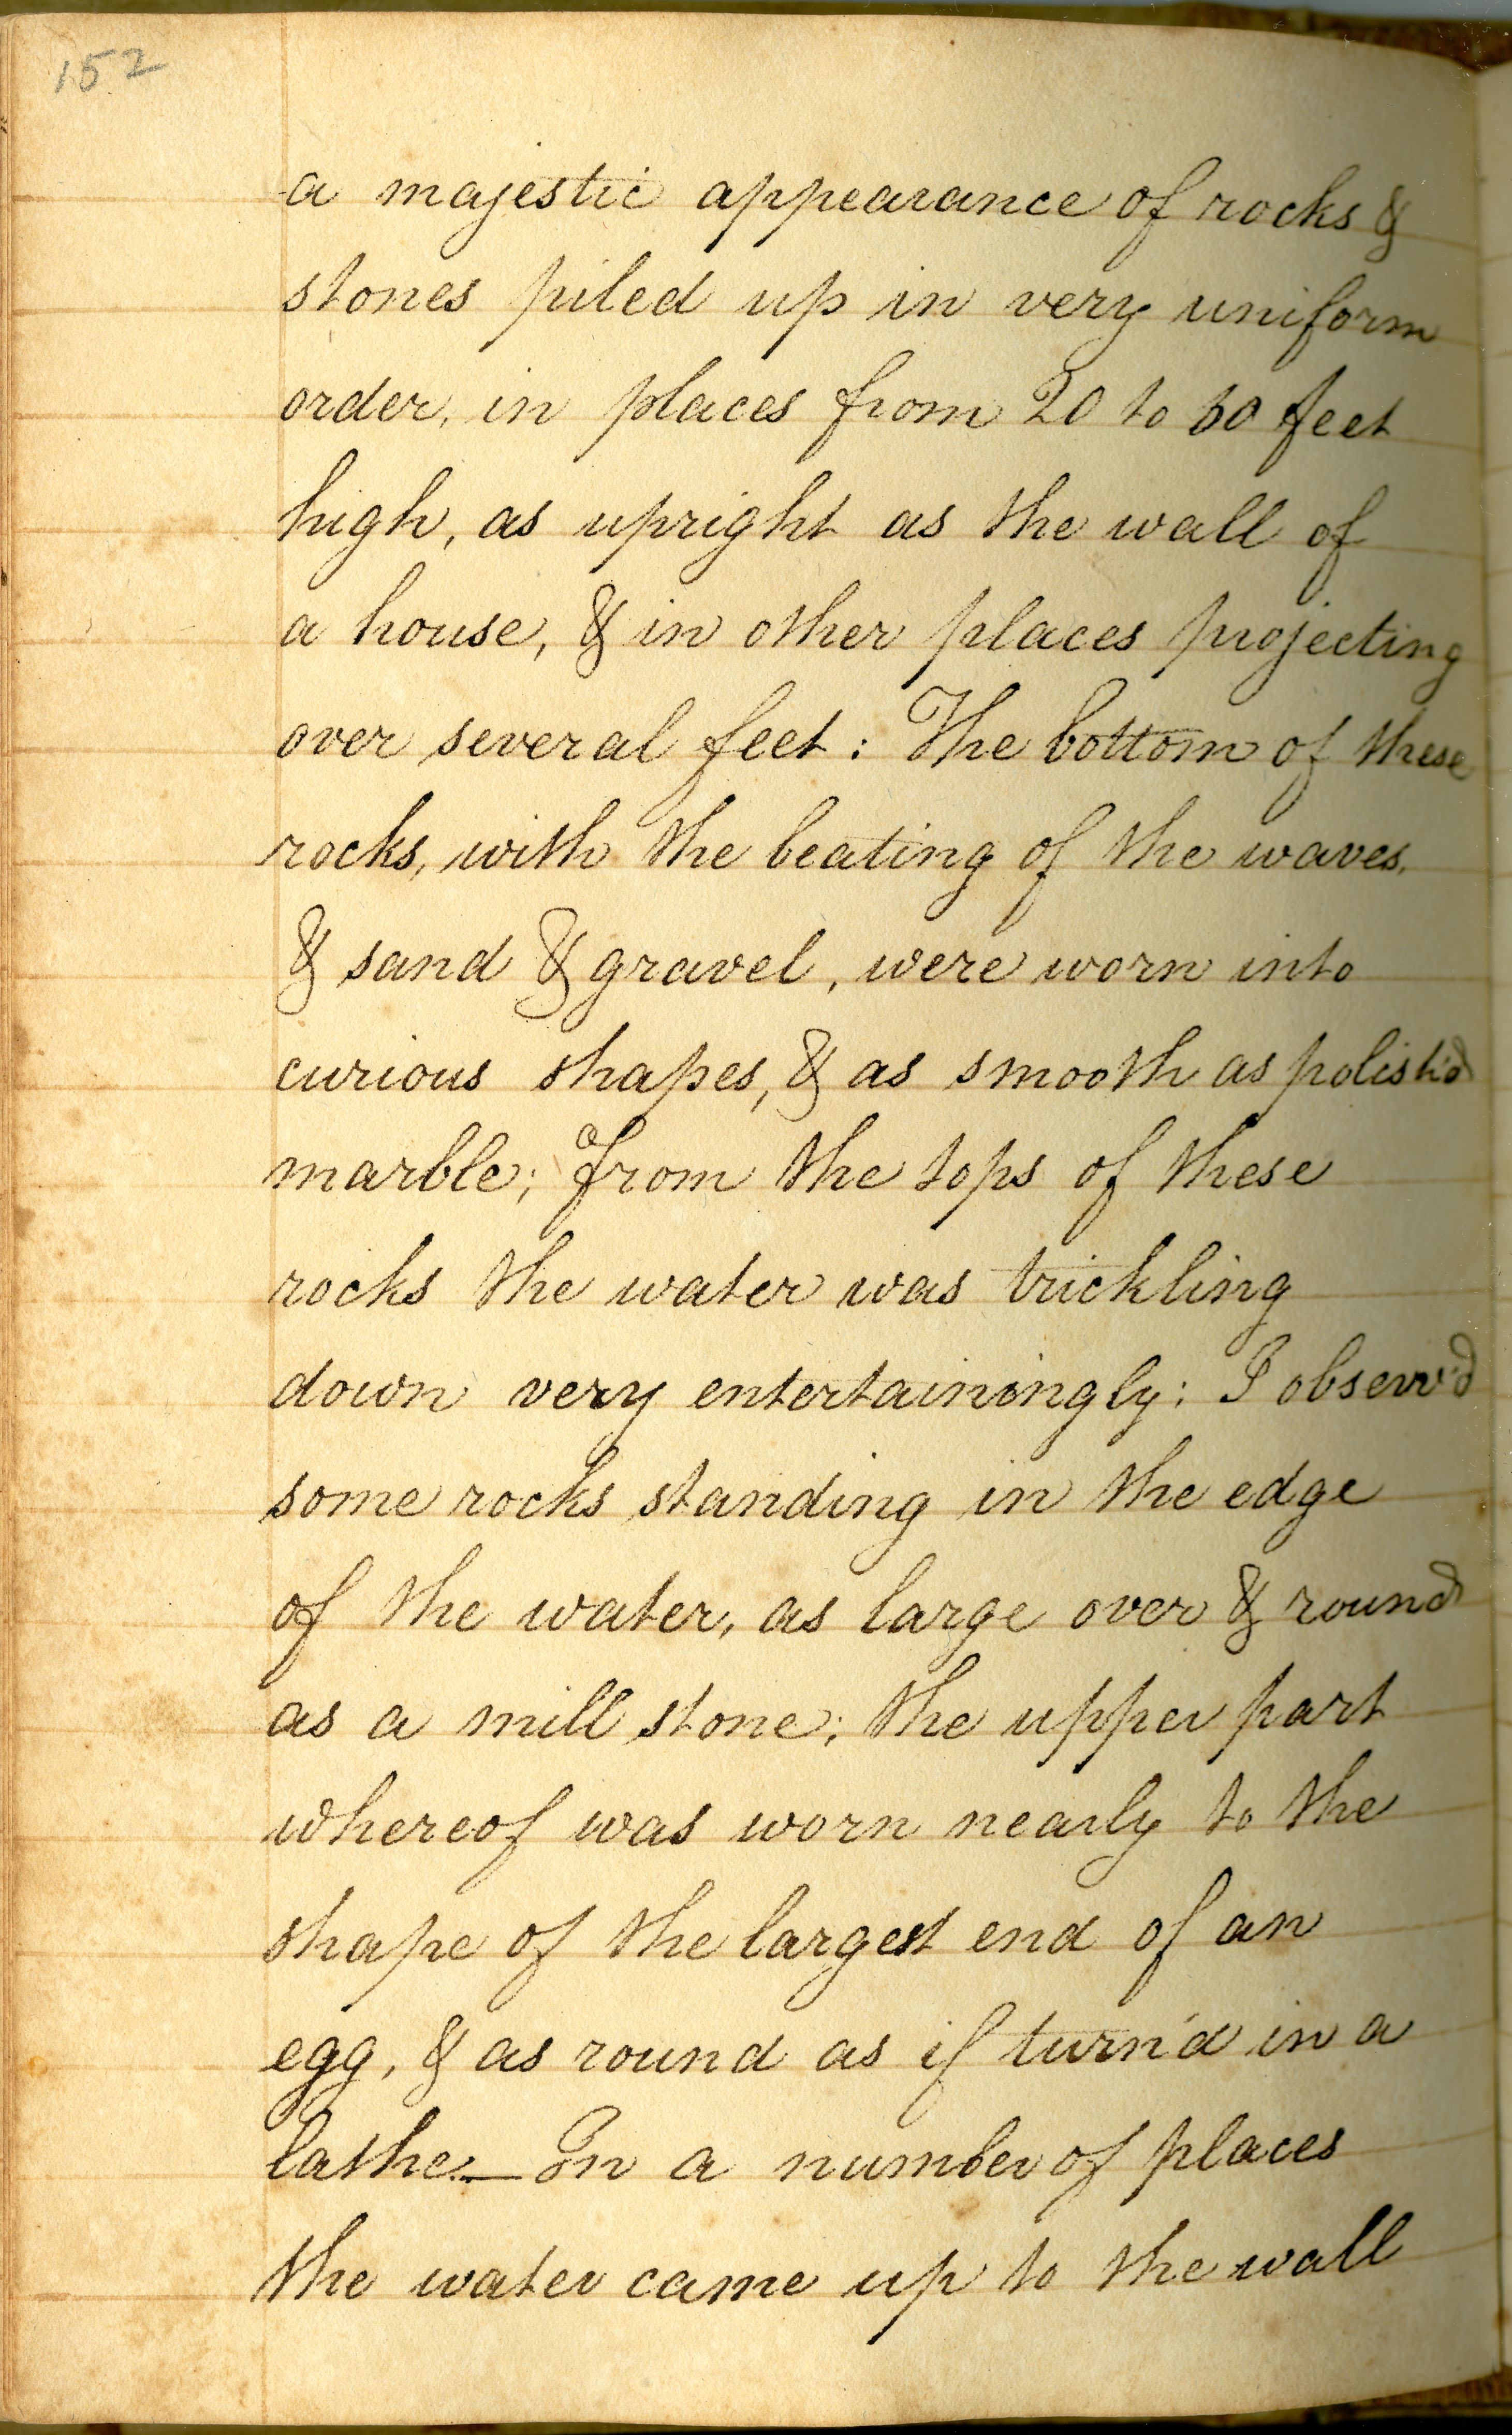 152
a majestic appearance of rocks &
stones piled up in very uniform
order, in places from 20 to 60 feet
high, as upright as the wall of
a house, & in other places projecting
over several feet: The bottom of these
rocks, with the beating of the waves,
& sand & gravel, were worn into
curious shapes, & as smooth as polish'd
marble; from the tops of these
rocks the water was trickling
down very entertainingly: I observ'd
some rocks standing in the edge
of the water, as large over & round
as a mill stone; the upper part
whereof was worn nearly to the
shape of the largest end of an
egg, & as round as if turn'd in a
lathe.— In a number of places
the water came up to the wall